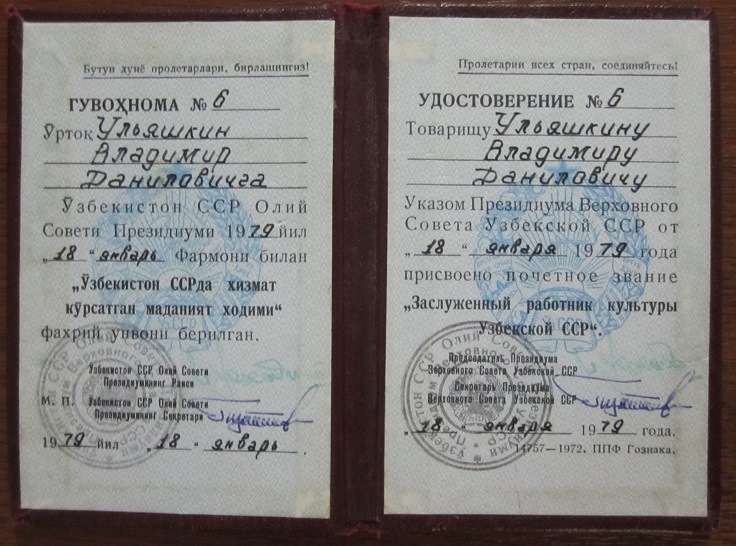 Бутун дунё пролетарлари, бирлашингиз!
ГУВОҲНОМА № 6
Ўртоқ Ульяшкин
Владимир
Даниловичга
Ўзбекистон ССР Олий
Совети Президиуми 1979 йил
„18" январь Фармони билан
„Ўзбекистон ССРда хизмат
кўрсатган маданият ходими"
фахрий унвони берилган.
Ўзбекистон ССР Олий Совети
Президиумининг Раиси
М. П. Ўзбекистон ССР Олий Совети
Президиумининг Секретари
1979 йил „18" январь.
Пролетарии всех стран, соединяйтесь!
УДОСТОВЕРЕНИЕ № 6
Товарищу Ульяшкину
Владимиру
Даниловичу
Указом Президиума Верховного
Совета Узбекской ССР от
„18" января 1979 года
присвоено почетное звание
„Заслуженный работник культуры
Узбекской ССР".
Председатель Президиума
Верховного Совета Узбекской ССР
Секретарь Президиума
Верховного Совета Узбекской ССР
„18" января 1979 года.
14757—1972. ППФ Гознака.